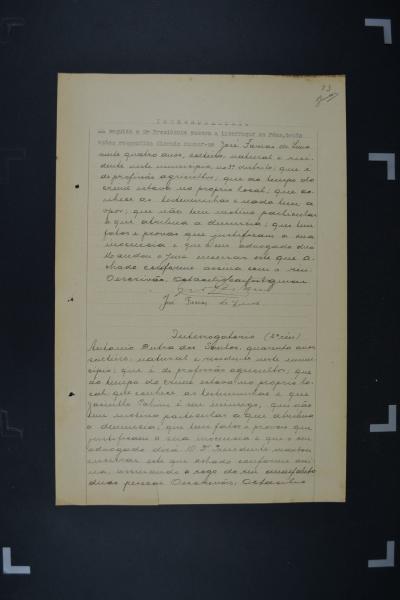 73
Interrogatorio.
Em seguida o Dr Presidente passou a interrogar os Réos, tendo
estes respondido dizendo chamar-se José Farias de Lima
vinte quatro anos, solteiro, natural e resi-
dente neste municipio, no 3º distrito; que é
de profissão agricultor; que ao tempo do
crime estava no proprio local; que co-
nhece as testemunhas e nada tem a
opor; que não tem motivo particular
a que atribua a denuncia; que tem
fatos e provas que justificam a sua
inocencia e que o seu advogado dirá
Mandou o Juiz encerrar este que a-
chado conforme assina com o reu.
Oescrivão,
José Farias de Lima
Interrogatorio (2º réu)
Antonio Dutra dos Santos, quarenta anos
solteiro; natural e residente neste muni-
cipio; que é de profissão agricultor; que
ao tempo do crime estava no proprio lo-
cal; que conhece as testemunhas e que
é seu inimigo; que não
tem motivo particular a que atribua
a denuncia; que tem fatos e provas que
justificam a sua inocencia e que o seu
advogado dirá. O Dr Presidente mandou
encerrar este que estando conforme assi-
na, assinando a rogo do reu analfabeto
duas pessoas Oescrivão,